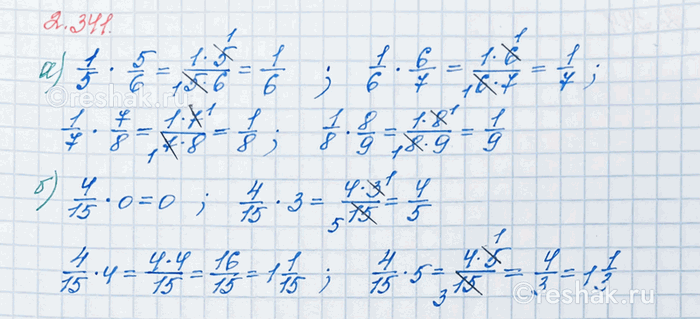 2.341.
а) 1/5 · 5/6 = 1·5/5·6 = 1/6 ; 1/6 · 6/7 = 1·6/6·7 = 1/7 ;
1/7 · 7/8 = 1·7/7·8 = 1/8 ; 1/8 · 8/9 = 1·8/8·9 = 1/9
б) 4/15 · 0 = 0 ; 4/15 · 3 = 4·3/15 = 4/5
4/15 · 4 = 4·4/15 = 16/15 = 1 1/15 ; 4/15 · 5 = 4·5/15 = 4/3 = 1 1/3
reshak.ru